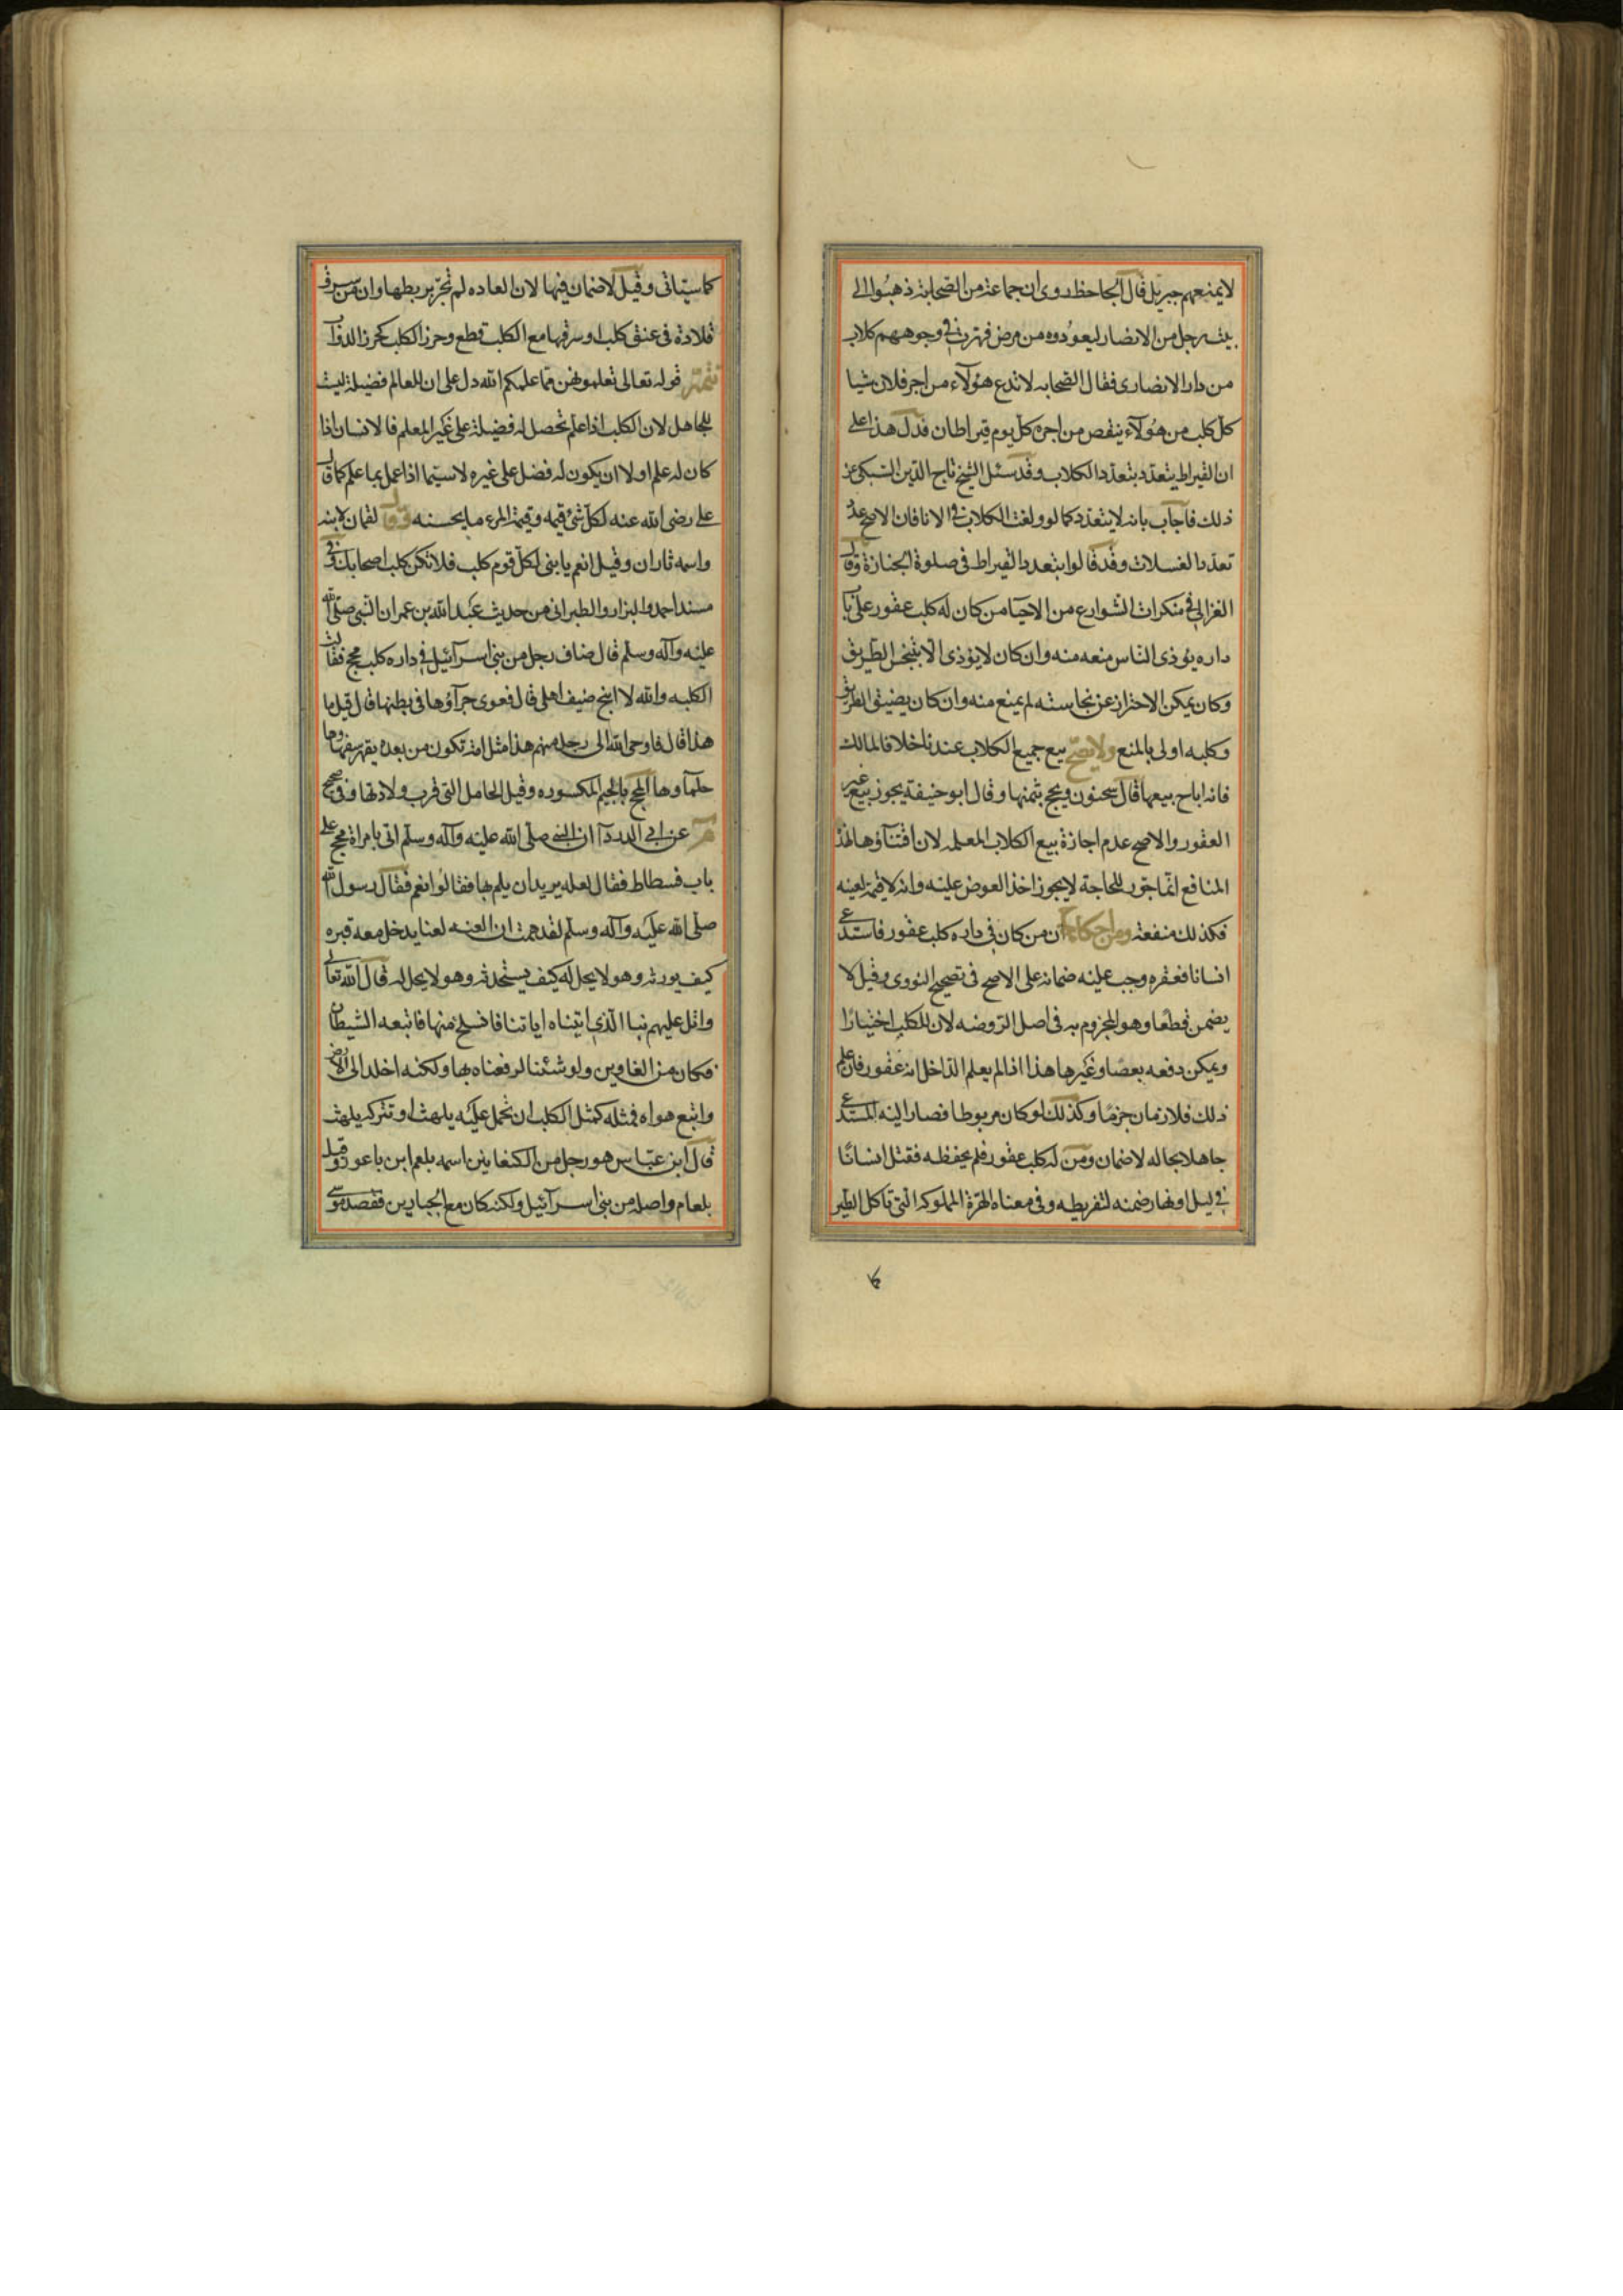 لايمنعهم جبريل قال الجاحظ روى ان جماعة من الصحابة ذهبوا الى
بيت رجل من الانصار ليعودوه من مرض فهرت فى وجوههم كلاب
من دار الانصارى فقال الصحابه لا تدع هؤلاء من اجر فلان شيا
كل كلب من هؤلاء ينقص من اجره كل يوم قيراطان فدل هذا على
ان القيراط يتعدد بتعدد الكلاب وقد سئل الشيخ تاج الدين السبكى عن
ذلك فاجاب بانه لايتعدد كما لو ولغت الكلاب فى الانا فان الاصح عدم
تعدد الغسلات وقد قالوا بتعدد القيراط فى صلوة الجنازة وقال
الغزالى فى منكرات الشوارع من الاحيا من كان له كلب عقور على باب
داره يوذى الناس منعه منه وان كان لايؤذى الا بتنجس الطريق
وكان يمكن الاحتراز عن نجاسته لم يمنع منه وان كان يضيق الطريق
وكلبه اولى بالمنع ولايصح بيع جميع الكلاب عندنا خلافا لمالك
فانه اباح بيعها قال سحنون ويحج بثمنها وقال ابو حنيفة يجوز بيع غير
العقور والاصح عدم اجازة بيع الكلاب المعلمه لان اقتناؤها لهذه
المنافع انما جوز للحاجة لايجوز اخذ العوض عليه وانه لاقيمة لعينه
فكذلك منفعته ومن احكامه ان من كان فى داره كلب عقور فاستدعى
انسانا فعقره وجب عليه ضمانه على الاصح فى تصحيح النووى وقيل لا
يضمن قطعا وهو المجزوم به فى اصل الروضه لان للكلب اختيارا
ويمكن دفعه بعصا وغيرها هذا اذا لم يعلم الداخل انه عقور فان علم
ذلك فلا زمان جزما وكذلك لو كان مربوطا فصار اليه المستدعى
جاهلا بحاله لاضمان ومن له كلب عقور فلم يحفظه فقتل انسانا
فى ليل او نهار ضمنه لتفريطه وفى معناه الهرة المملوكه التى تاكل الطير
كما سياتى وقيل لا ضمان فيها لان العاده لم تجر بربطها وان من سرق
قلادة فى عنق كلب او سرقها مع الكلب قطع وحرز الكلب كحرز الدواب
تتمة قوله تعالى تعلمونهن مما علمكم الله دل على ان للعالم فضيلة ليست
للجاهل لان الكلب اذا علم تحصل له فضيلة على غير المعلم فالانسان اذا
كان له علم اولا ان يكون له فضل على غيره لاسيما اذا عمل بما علم كما قال
على رضى الله عنه لكل شئ قيمه وقيمة المرء ما يحسنه وقال لقمان لابنه
واسمه ثاران وقيل انعم يا بنى لكل قوم كلب فلا تكن كلب اصحابك وفى
مسند احمد والبزار والطبرانى من حديث عبد الله بن عمر ان النبى صلى الله
عليه وآله وسلم قال ضاف رجل من بنى اسرآئيل فى داره كلب مجح فقالت
الكلبه والله لا انبح ضيف اهلى قال فعوى جرآؤها فى بطنها قال قيل ما
هذا قال فاوحى الله الى رجل منهم هذا مثل امة تكون من بعدكم يقهر سفهاؤها
حلمآوها المجح بالجيم المكسوره وقيل الحامل التى قرب ولادتها وفى صحيح
م عن ابى الدردآ ان النبى صلى الله عليه وآله وسلم اتى بامراة مجح على
باب فسطاط فقال لعله يريد ان يلم بها فقالوا نعم فقال رسول الله
صلى الله عليه وآله وسلم لقد هممت ان العنه لعنا يدخل معه قبره
كيف يورثه وهو لا يحل له كيف يستخدثه وهو لا يحل له قال الله تعالى
واتل عليهم نبا الذى اتيناه اياتنا فانسلخ منها فاتبعه الشيطان
فكان من الغاوين ولو شئنا لرفعناه بها ولكنه اخلد الى الارض
واتبع هواه فمثله كمثل الكلب ان تحمل عليه يلهث او تتركه يلهث
قال ابن عباس هو رجل من الكنعانيين اسمه بلعم ابن باعور وقيل
بلعام واصله من بنى اسرآئيل ولكنه كان مع الجبارين فقصد موسى